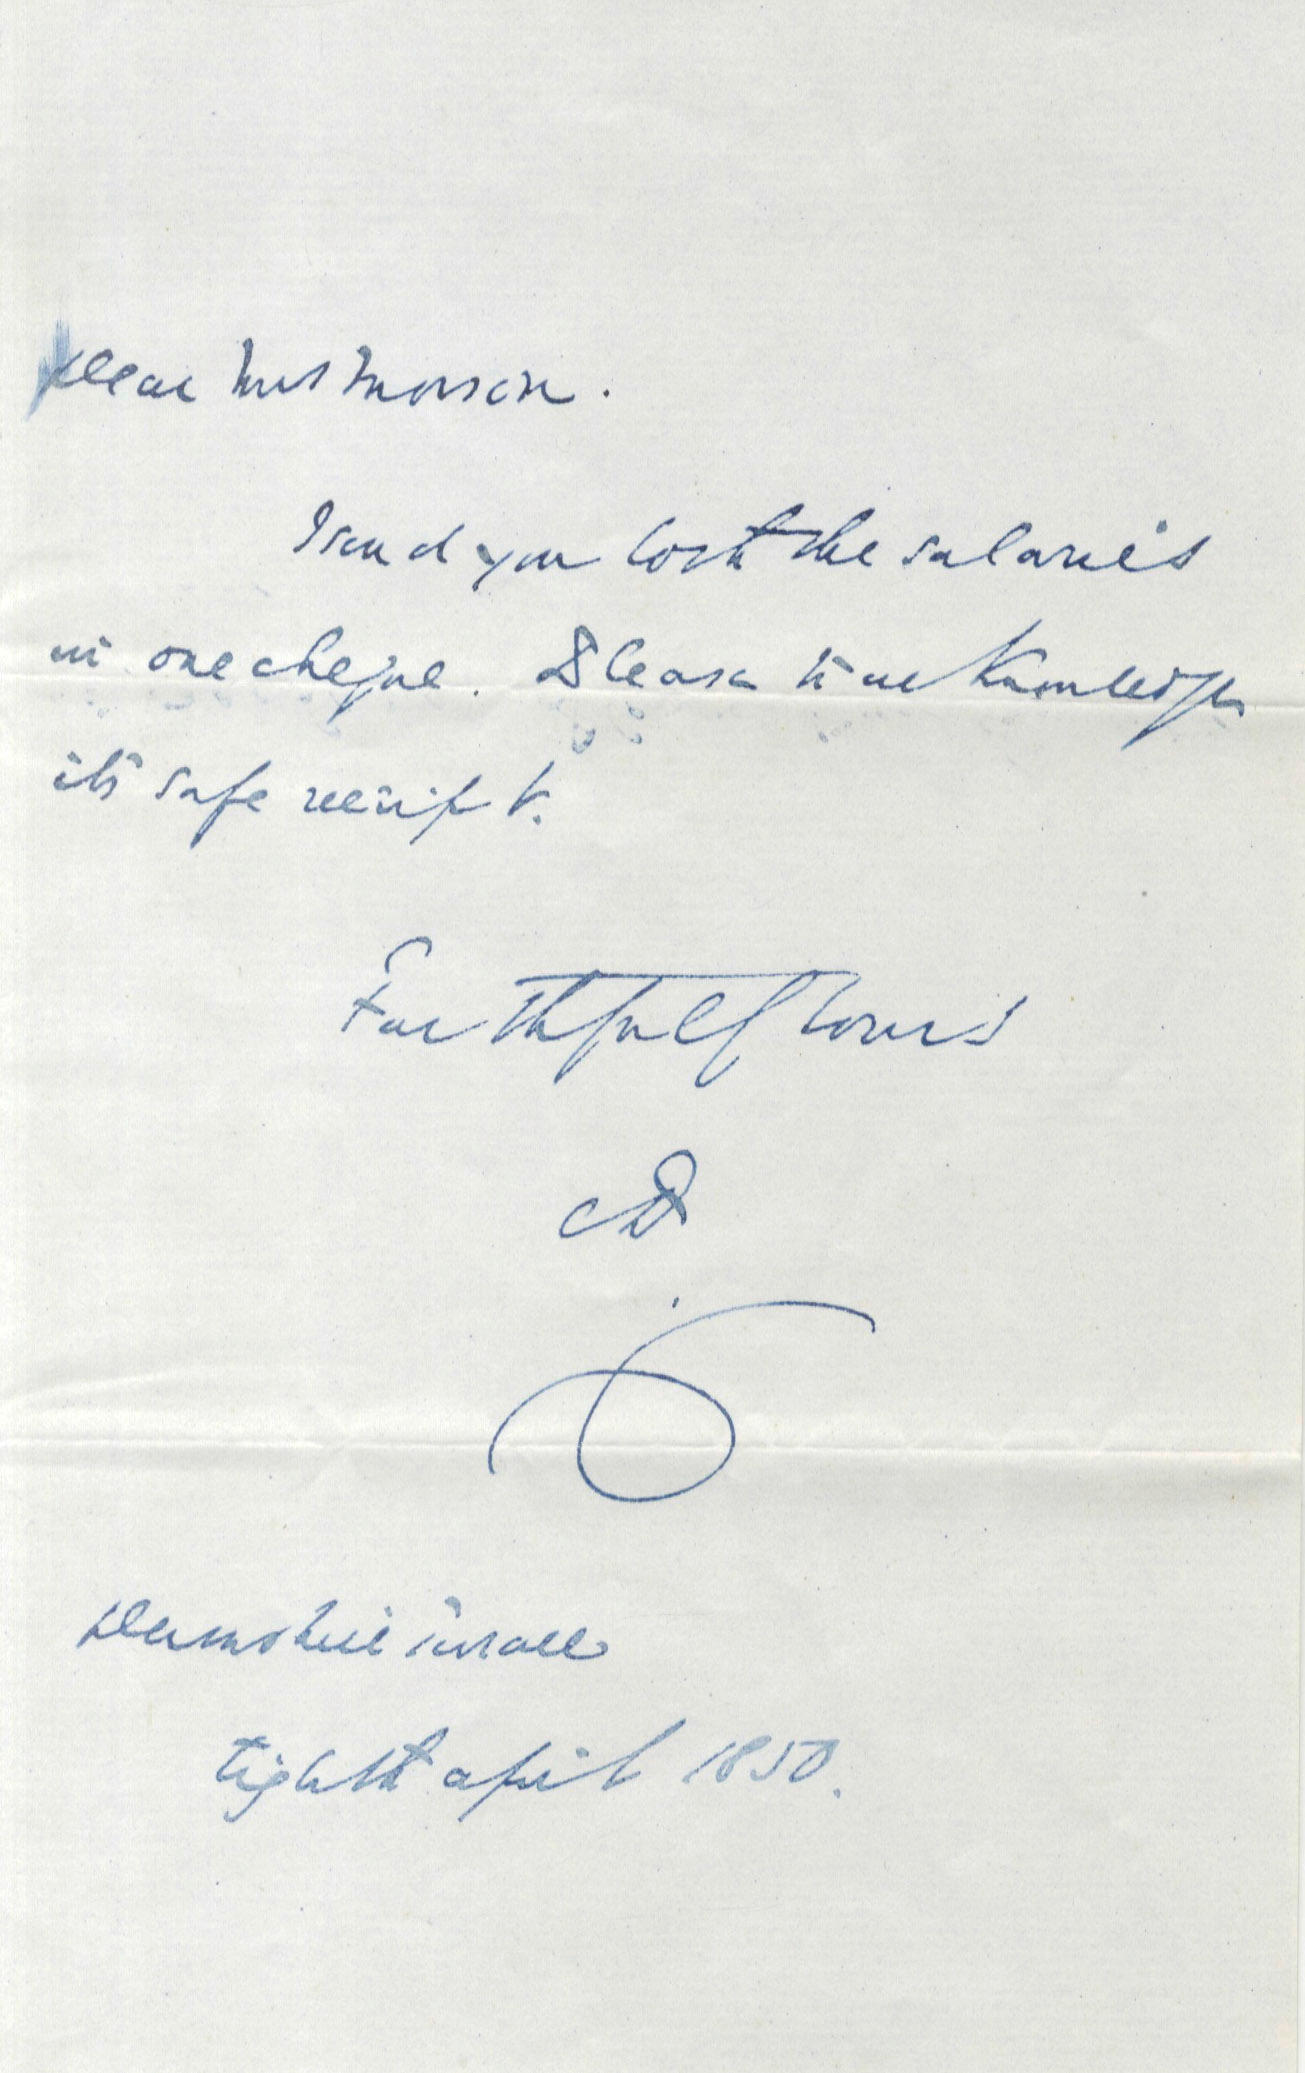 Dear Mrs Morson.
I send you both the salaries
in one cheque. Please to acknowledge
its safe receipt.
Faithfully Yours
CD
Devonshire Terrace
Eighth April 1850.